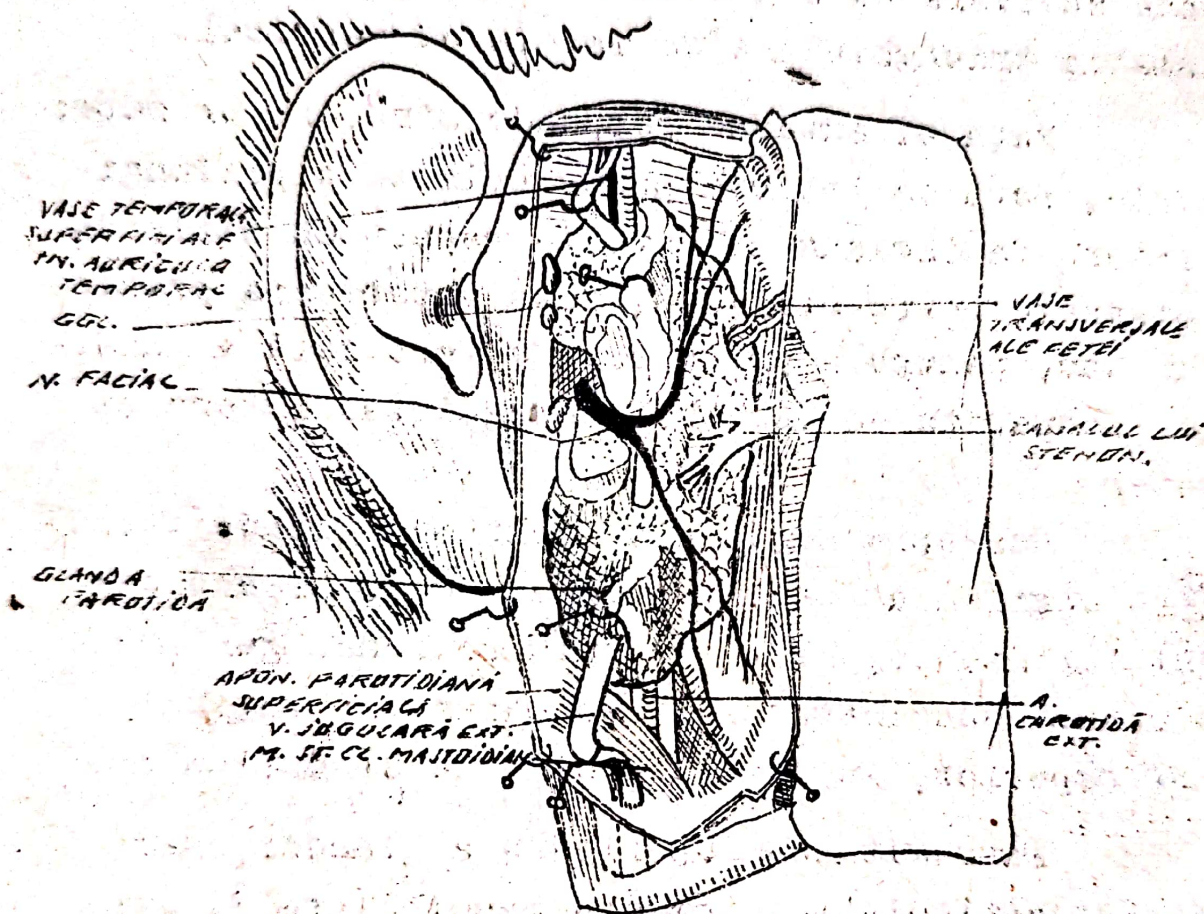 VASE TEMPORALE
SUPERFICIALE
ȘI N. AURICULO
TEMPORAL
GGL.
N. FACIAL
GLANDA
PAROTIDĂ
APON. PAROTIDIANĂ
SUPERFICIALĂ
V. JUGULARĂ EXT.
M. ST. CL. MASTOIDIAN
VASE
TRANSVERSALE
ALE FEȚEI
CANALUL LUI
STENON.
A.
CAROTIDĂ
EXT.